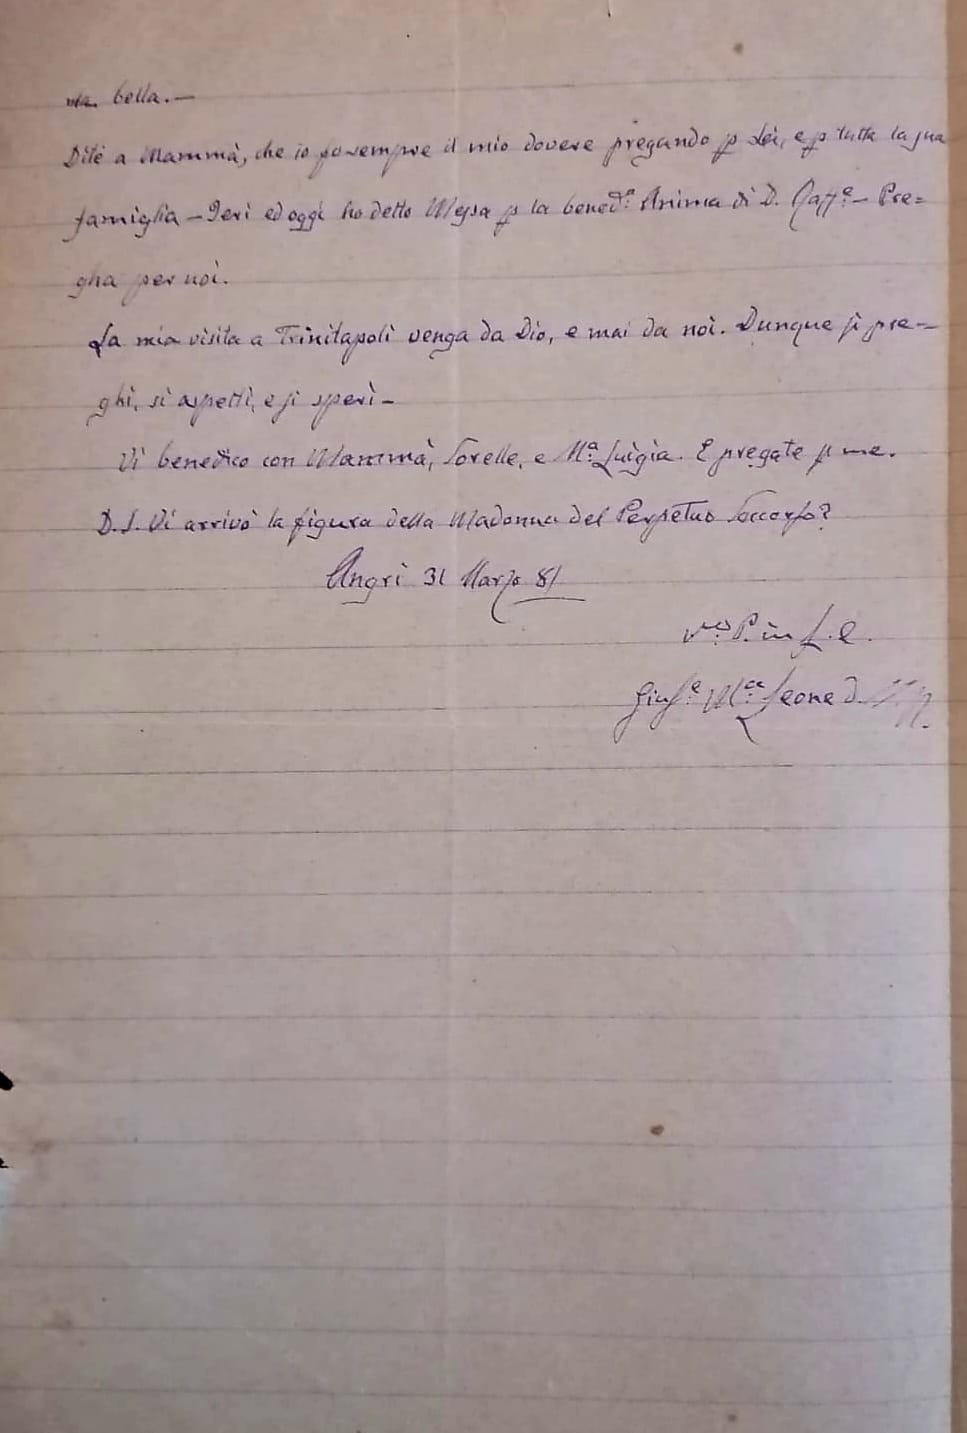 ma bella.—
Dite a Mammà, che io fo sempre il mio dovere pregando p Lei, e p tutta la sua
famiglia — Ieri ed oggi ho detto Messa p la bened.ª Anima di D. Raff.e — Pre=
gha per noi.
La mia visita a Trinitapoli venga da Dio, e mai da noi. Dunque si pre—
ghi, si aspetti, e si speri —
Vi benedico con Mammà, Sorelle, e M.ª Luigia. E pregate p me.
D. S. Vi arrivò la figura della Madonna del Perpetuo Soccorso?
Angri 31 Marzo 81
P. in G. C.
Gius.e M.a Leone d.